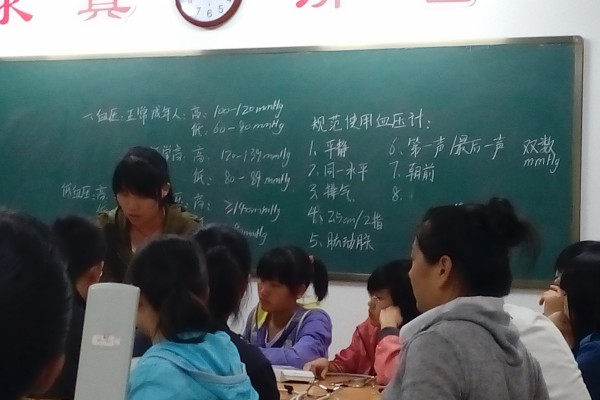 求 真
一、血压：正常成年人：高：100-120mmHg
低：60-80mmHg
常高 高：120-139mmHg
低：80-89mmHg
低血压：高
压：高：≥140mmHg
mmHg
规范使用血压计：
1、平静
2、同一水平
3、排气
4、2.5cm/2指
5、肱动脉
6、第一声/最后一声 双数 mmHg
7、朝前
8、